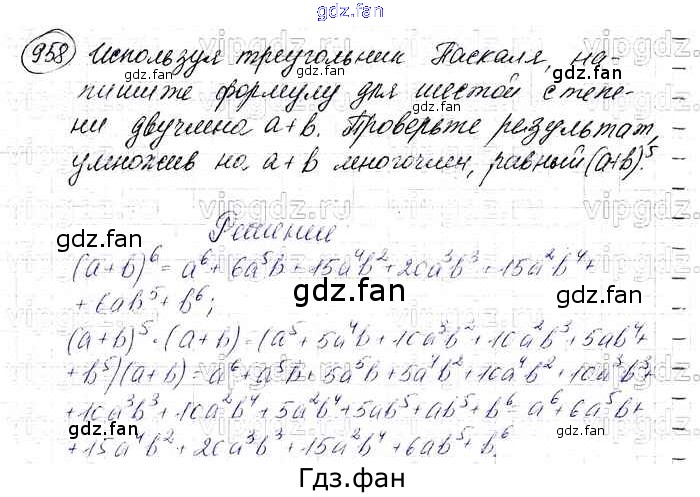 gdz.fan
958 Используя треугольник Паскаля, на-
пишите формулу для шестой степе-
ни двучлена a+b. Проверьте результат,
умножив на a+b многочлен, равный (a+b)⁵.
Решение
(a+b)⁶ = a⁶ + 6a⁵b + 15a⁴b² + 20a³b³ + 15a²b⁴ +
+ 6ab⁵ + b⁶;
(a+b)⁵ · (a+b) = (a⁵ + 5a⁴b + 10a³b² + 10a²b³ + 5ab⁴ +
+ b⁵)(a+b) = a⁶ + a⁵b + 5a⁵b + 5a⁴b² + 10a⁴b² + 10a³b³ +
+ 10a³b³ + 10a²b⁴ + 5a²b⁴ + 5ab⁵ + ab⁵ + b⁶ = a⁶ + 6a⁵b +
+ 15a⁴b² + 20a³b³ + 15a²b⁴ + 6ab⁵ + b⁶.
Гдз.фан